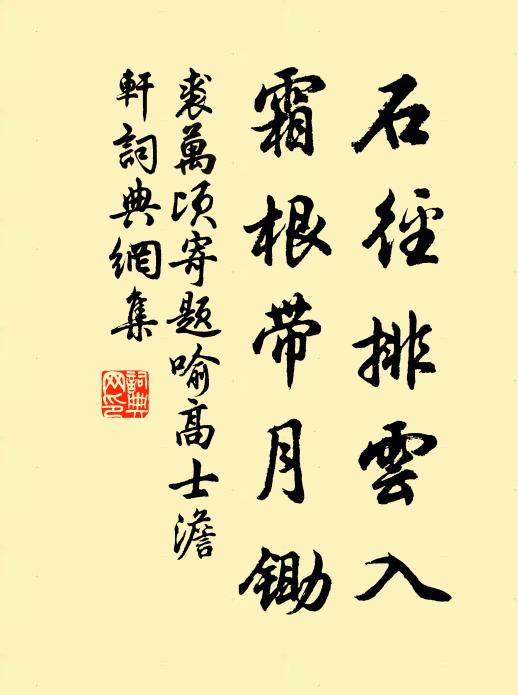 石徑排雲入
霜根带月鋤
裘萬頃寄題喻高士澹
軒詞典網集
詞典网印